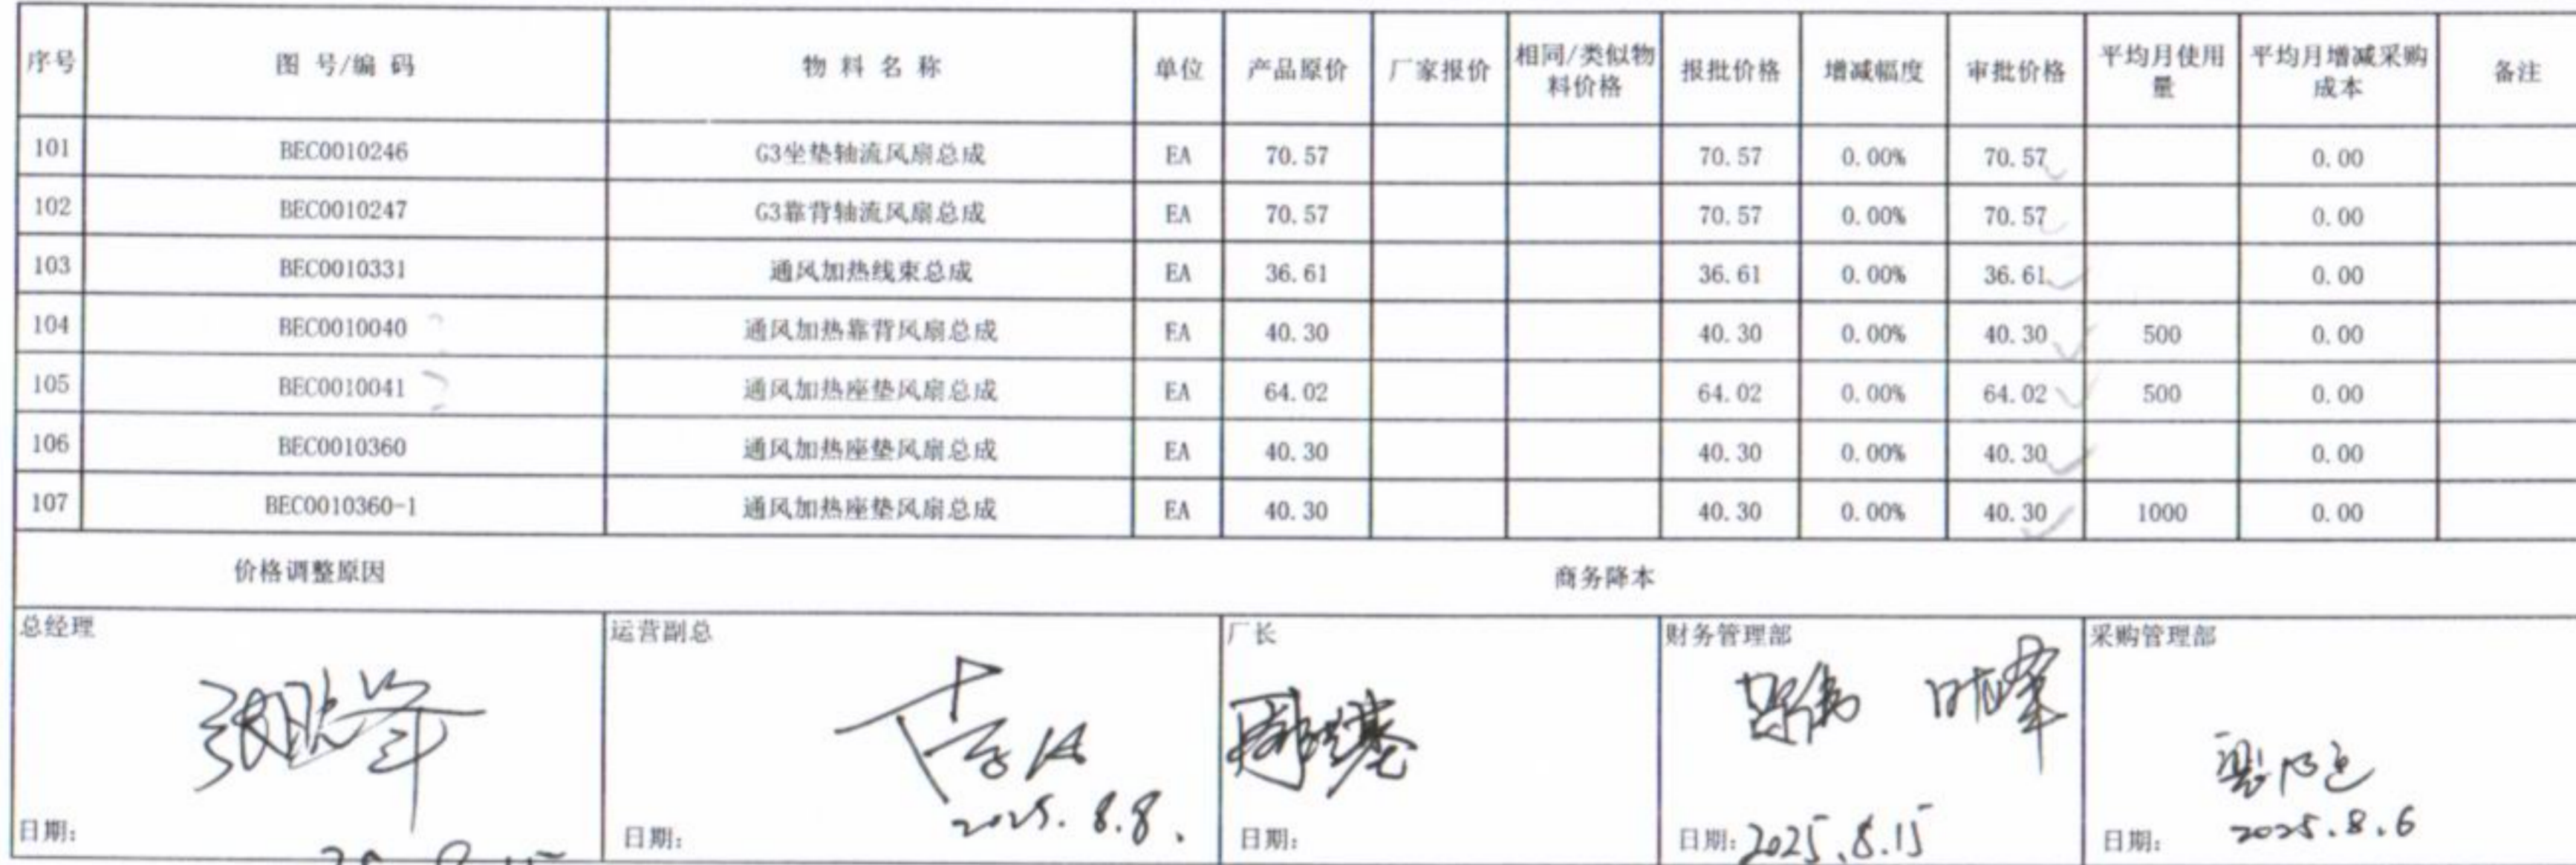 序号 图 号/编 码 物 料 名 称 单位 产品原价 厂家报价 相同/类似物料价格 报批价格 增减幅度 审批价格 平均月使用量 平均月增减采购成本 备注
101 BEC0010246 G3坐垫轴流风扇总成 EA 70.57 70.57 0.00% 70.57 0.00
102 BEC0010247 G3靠背轴流风扇总成 EA 70.57 70.57 0.00% 70.57 0.00
103 BEC0010331 通风加热线束总成 EA 36.61 36.61 0.00% 36.61 0.00
104 BEC0010040 通风加热靠背风扇总成 EA 40.30 40.30 0.00% 40.30 500 0.00
105 BEC0010041 通风加热座垫风扇总成 EA 64.02 64.02 0.00% 64.02 500 0.00
106 BEC0010360 通风加热座垫风扇总成 EA 40.30 40.30 0.00% 40.30 0.00
107 BEC0010360-1 通风加热座垫风扇总成 EA 40.30 40.30 0.00% 40.30 1000 0.00
价格调整原因 商务降本
总经理 运营副总 厂长 财务管理部 采购管理部
日期: 日期: 2025.8.8. 日期: 日期: 2025.8.15 日期: 2025.8.6